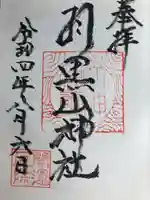 奉拝
羽黒山神社
令和四年八月六日